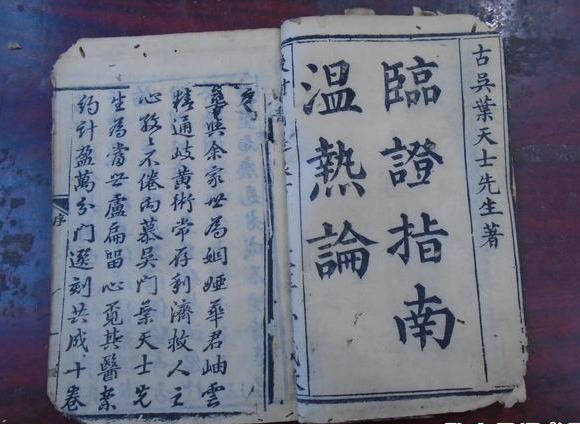 古吳葉天士先生著
臨證指南
溫熱論
序
與余家世為姻婭華君岫雲
精通岐黃術常存利濟救人之
心孜〻不倦向慕吳門葉天士先
生為當世盧扁留心覓其醫案
約計盈萬分門選刻共成十卷
序